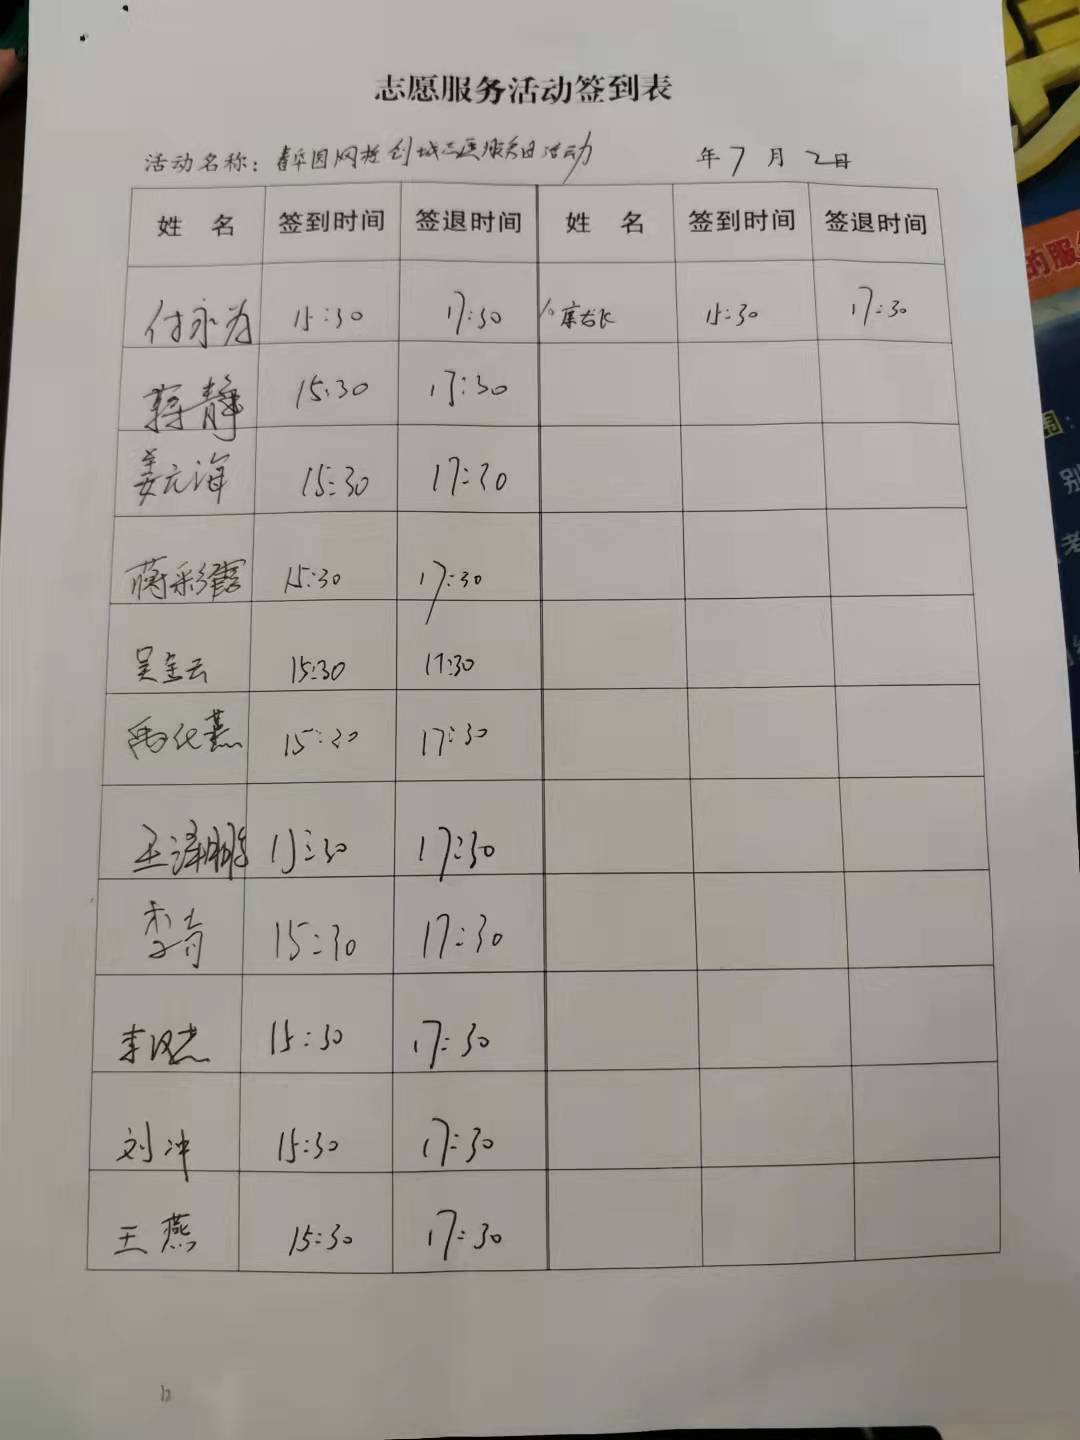 志愿服务活动签到表
活动名称: 春华园网格创城志愿服务日活动 年7月2日
姓 名 签到时间 签退时间 姓 名 签到时间 签退时间
付永为 15:30 17:30 15:30 17:30
蒋静 15:30 17:30
姜元海 15:30 17:30
蒋彩霞 15:30 17:30
吴金云 15:30 17:30
15:30 17:30
王泽鹏 15:30 17:30
李奇 15:30 17:30
李汉杰 15:30 17:30
刘冲 15:30 17:30
王燕 15:30 17:30
的服
围:
别
考